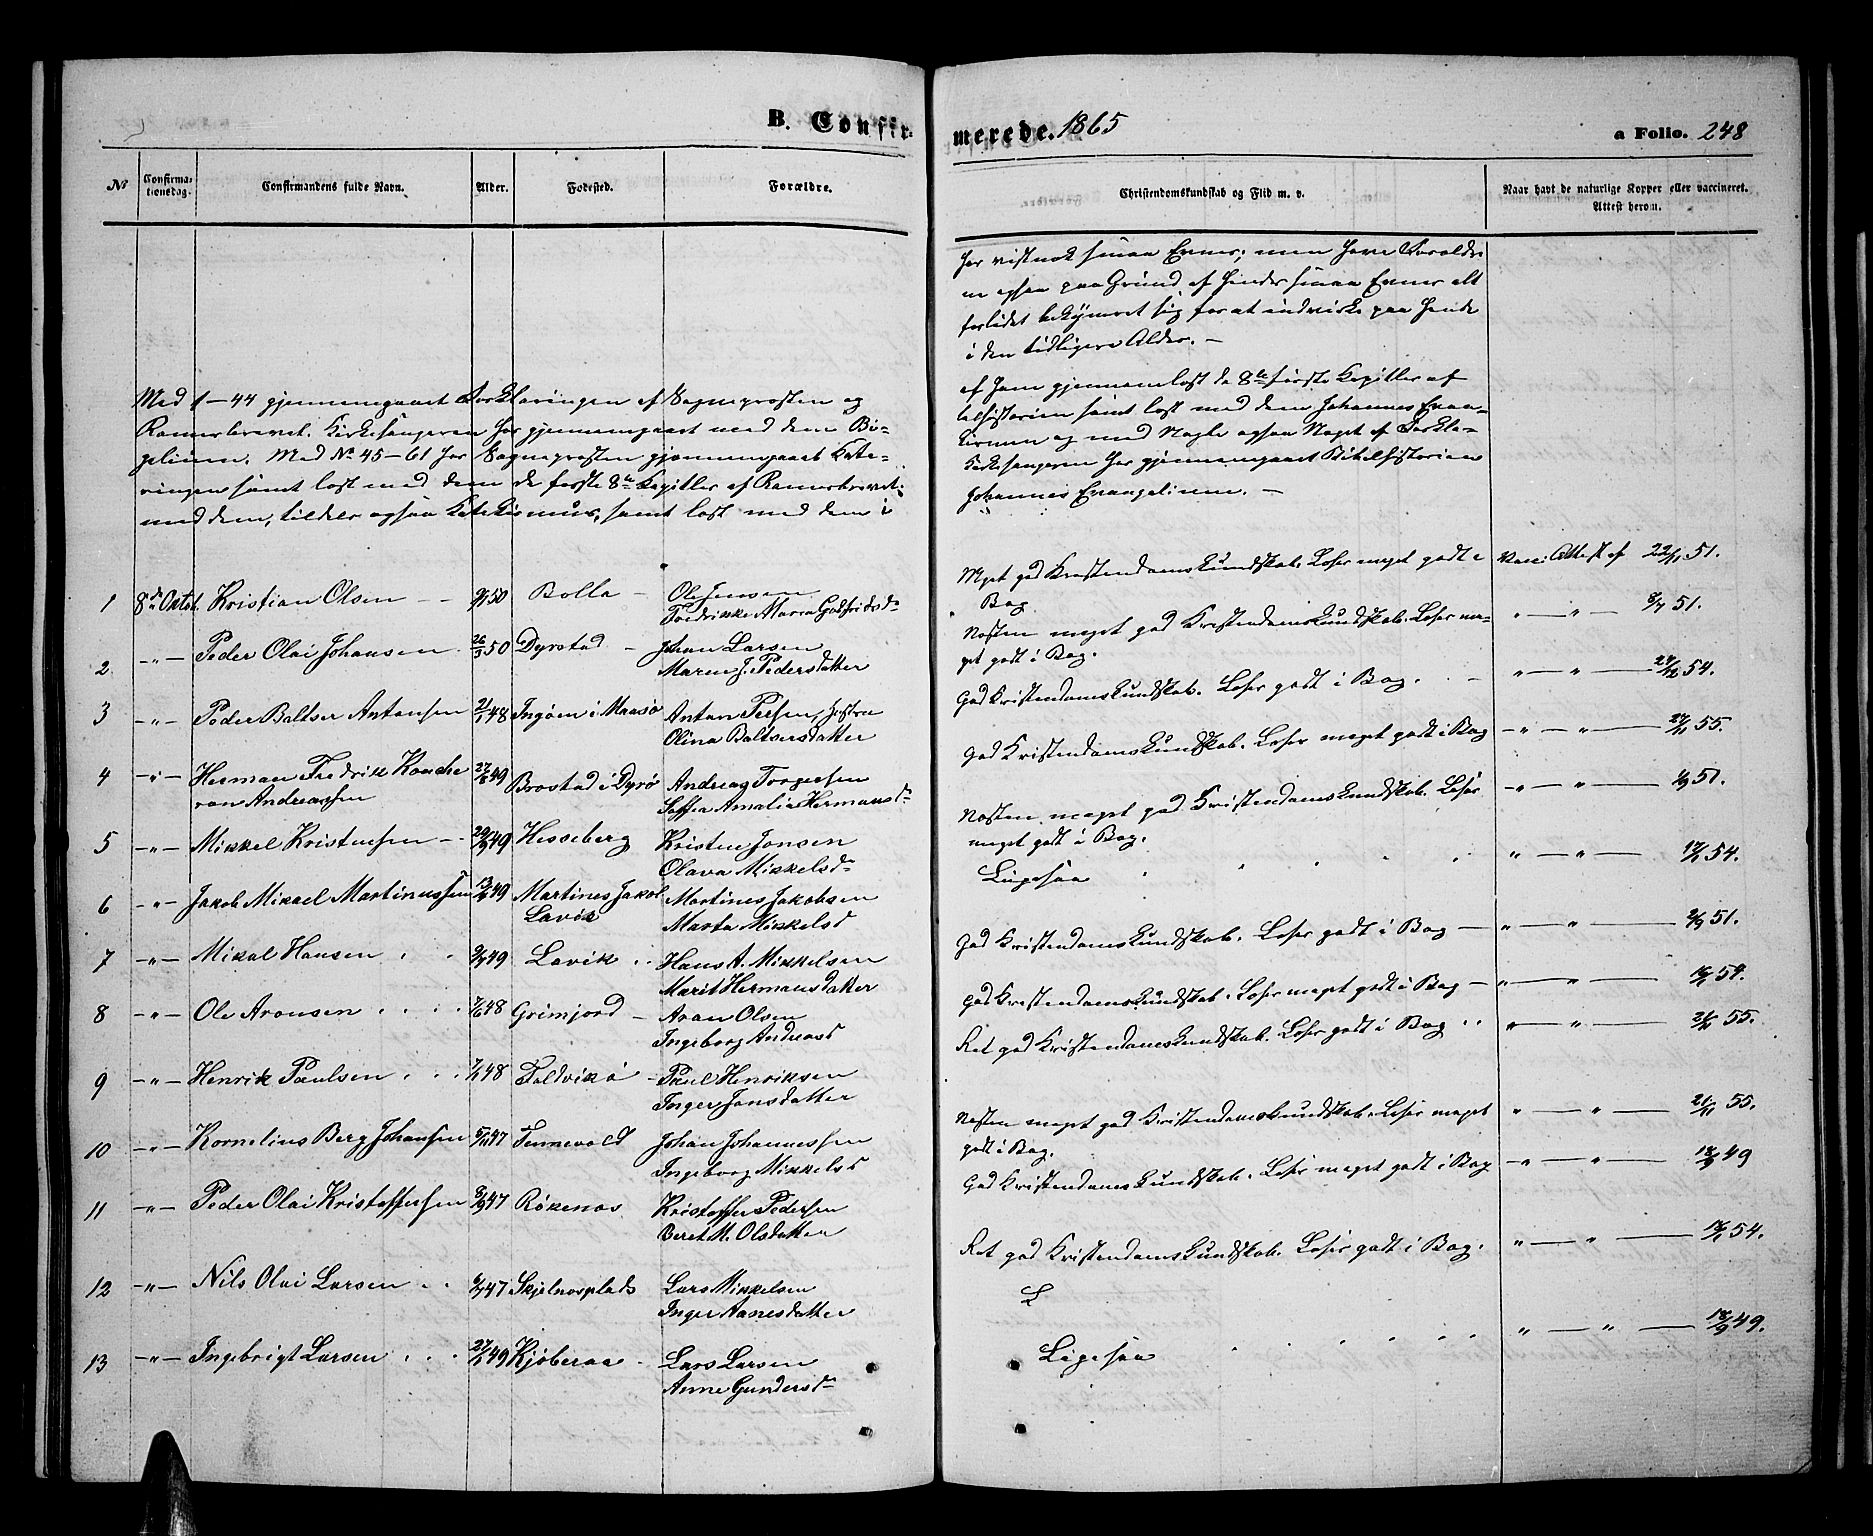 B. Confirmerede. 1865
a Folio. 248
No
Confirmationsdag.
Confirmandens fulde Navn.
Alder.
Fødested.
Forældre.
Christendomskundskab og Flid m. v.
Naar havt de naturlige Kopper eller vaccineret.
Attest herom.
har vistnok smaa Evner; men have Forældre
ne ogsaa paa Grund af hendes smaa Evner alt
forlidet bekymret sig for at indvirke paa hende
i den tidligere Alder. —
Med 1—44 gjennemgaaet Forklaringen af Sogneprosten og
Romerbrevet. Kirkesangeren har gjennemgaaet med dem Bi-
gelium. Med No 45—61 har Sogneprosten gjennemgaaet Kate-
ringen samt læst med dem de første 8te Kapitler af Romerbrevet.
med dem, tildels ogsaa Katekismus, samt læst med dem i
af ham gjennemlæst de 8te første Kapitler af
belhistorien samt læst med dem Johannes Evan-
kismen og med Nogle ogsaa Noget af Forkla-
Kirkesangeren har gjennemgaaet Bibelhistorien
Johannes Evangelium. —
1 8de Oktob. Kristian Olsen — 50 Bolla — Ole Jensen
Fredrikke Maria Godtfridsdr
Meget god Kristendomskundskab. Læser meget godt i
Bog
Vacc. Attest af 22/1 51.
2 —"— Peder Olai Johansen 26/3 50 Dyrstad — Johan Larsen
Maren J. Pedersdatter
Næsten meget god Kristendomskundskab. Læser me-
get godt i Bog.
" — " — 8/7 51.
3 —"— Peder Baltser Antonsen 21/1 48 Ingøen i Maasø Anton Persen,
Olina Baltsersdatter
God Kristendomskundskab. Læser godt i Bog. —
" — " — 27/12 54.
4 —"— Herman Fredrik Konche
van Andreassen 49 Brostad i Dyrø Andreas Torgersen
Soffia Amalia Hermansdr
God Kristendomskundskab. Læser meget godt i Bog
— " — " — 55.
5 —"— Mikkel Kristensen — 49 Hesseberg Kristen Jonsen
Olava Mikkelsdr
Næsten meget god Kristendomskundskab. Læser
meget godt i Bog.
— " — " — 51.
6 —"— Jakob Mikael Martinussen 49 Martines Jakob
Lavik
Martines Jakobsen
Marta Mikkelsd
Ligesaa
" — " — 54.
7 —"— Mikal Hansen 49 Lavik Hans A. Mikkelsen
Marit Hermansdatter
God Kristendomskundskab. Læser godt i Bog —
" — " — 51.
8 —"— Ole Aronsen 48 Grimjord — Aron Olsen
Ingeborg Andreasd
God Kristendomskundskab. Læser meget godt i Bog —
" — " — 54.
9 —"— Henrik Paulsen 48 Foldvik — Paul Henriksen
Inger Jonsdatter
Ret god Kristendomskundskab. Læser godt i Bog
" — " — 55.
10 —"— Kornelius Berg Johansen 47 Tennevold Johan Johannessen
Ingeborg Mikkelsd
Næsten meget god Kristendomskundskab. Læser meget
godt i Bog.
" — " — 21/11 55.
11 —"— Peder Olai Kristoffersen 47 Røkenes Kristoffer Pedersen
Beret M. Olsdatter
God Kristendomskundskab. Læser meget godt i Bog
— " — " — 18/9 49
12 —"— Nils Olai Larsen 47 Skjelnesplads Lars Mikkelsen
Inger Aanesdatter
Ret god Kristendomskundskab. Læser godt i Bog.
L
" — " — 54.
13 —"— Ingebrigt Larsen 49 Kjøberaa — Lars Larsen
Anne Gundersdr
Ligesaa
" — " — 18/9 49.